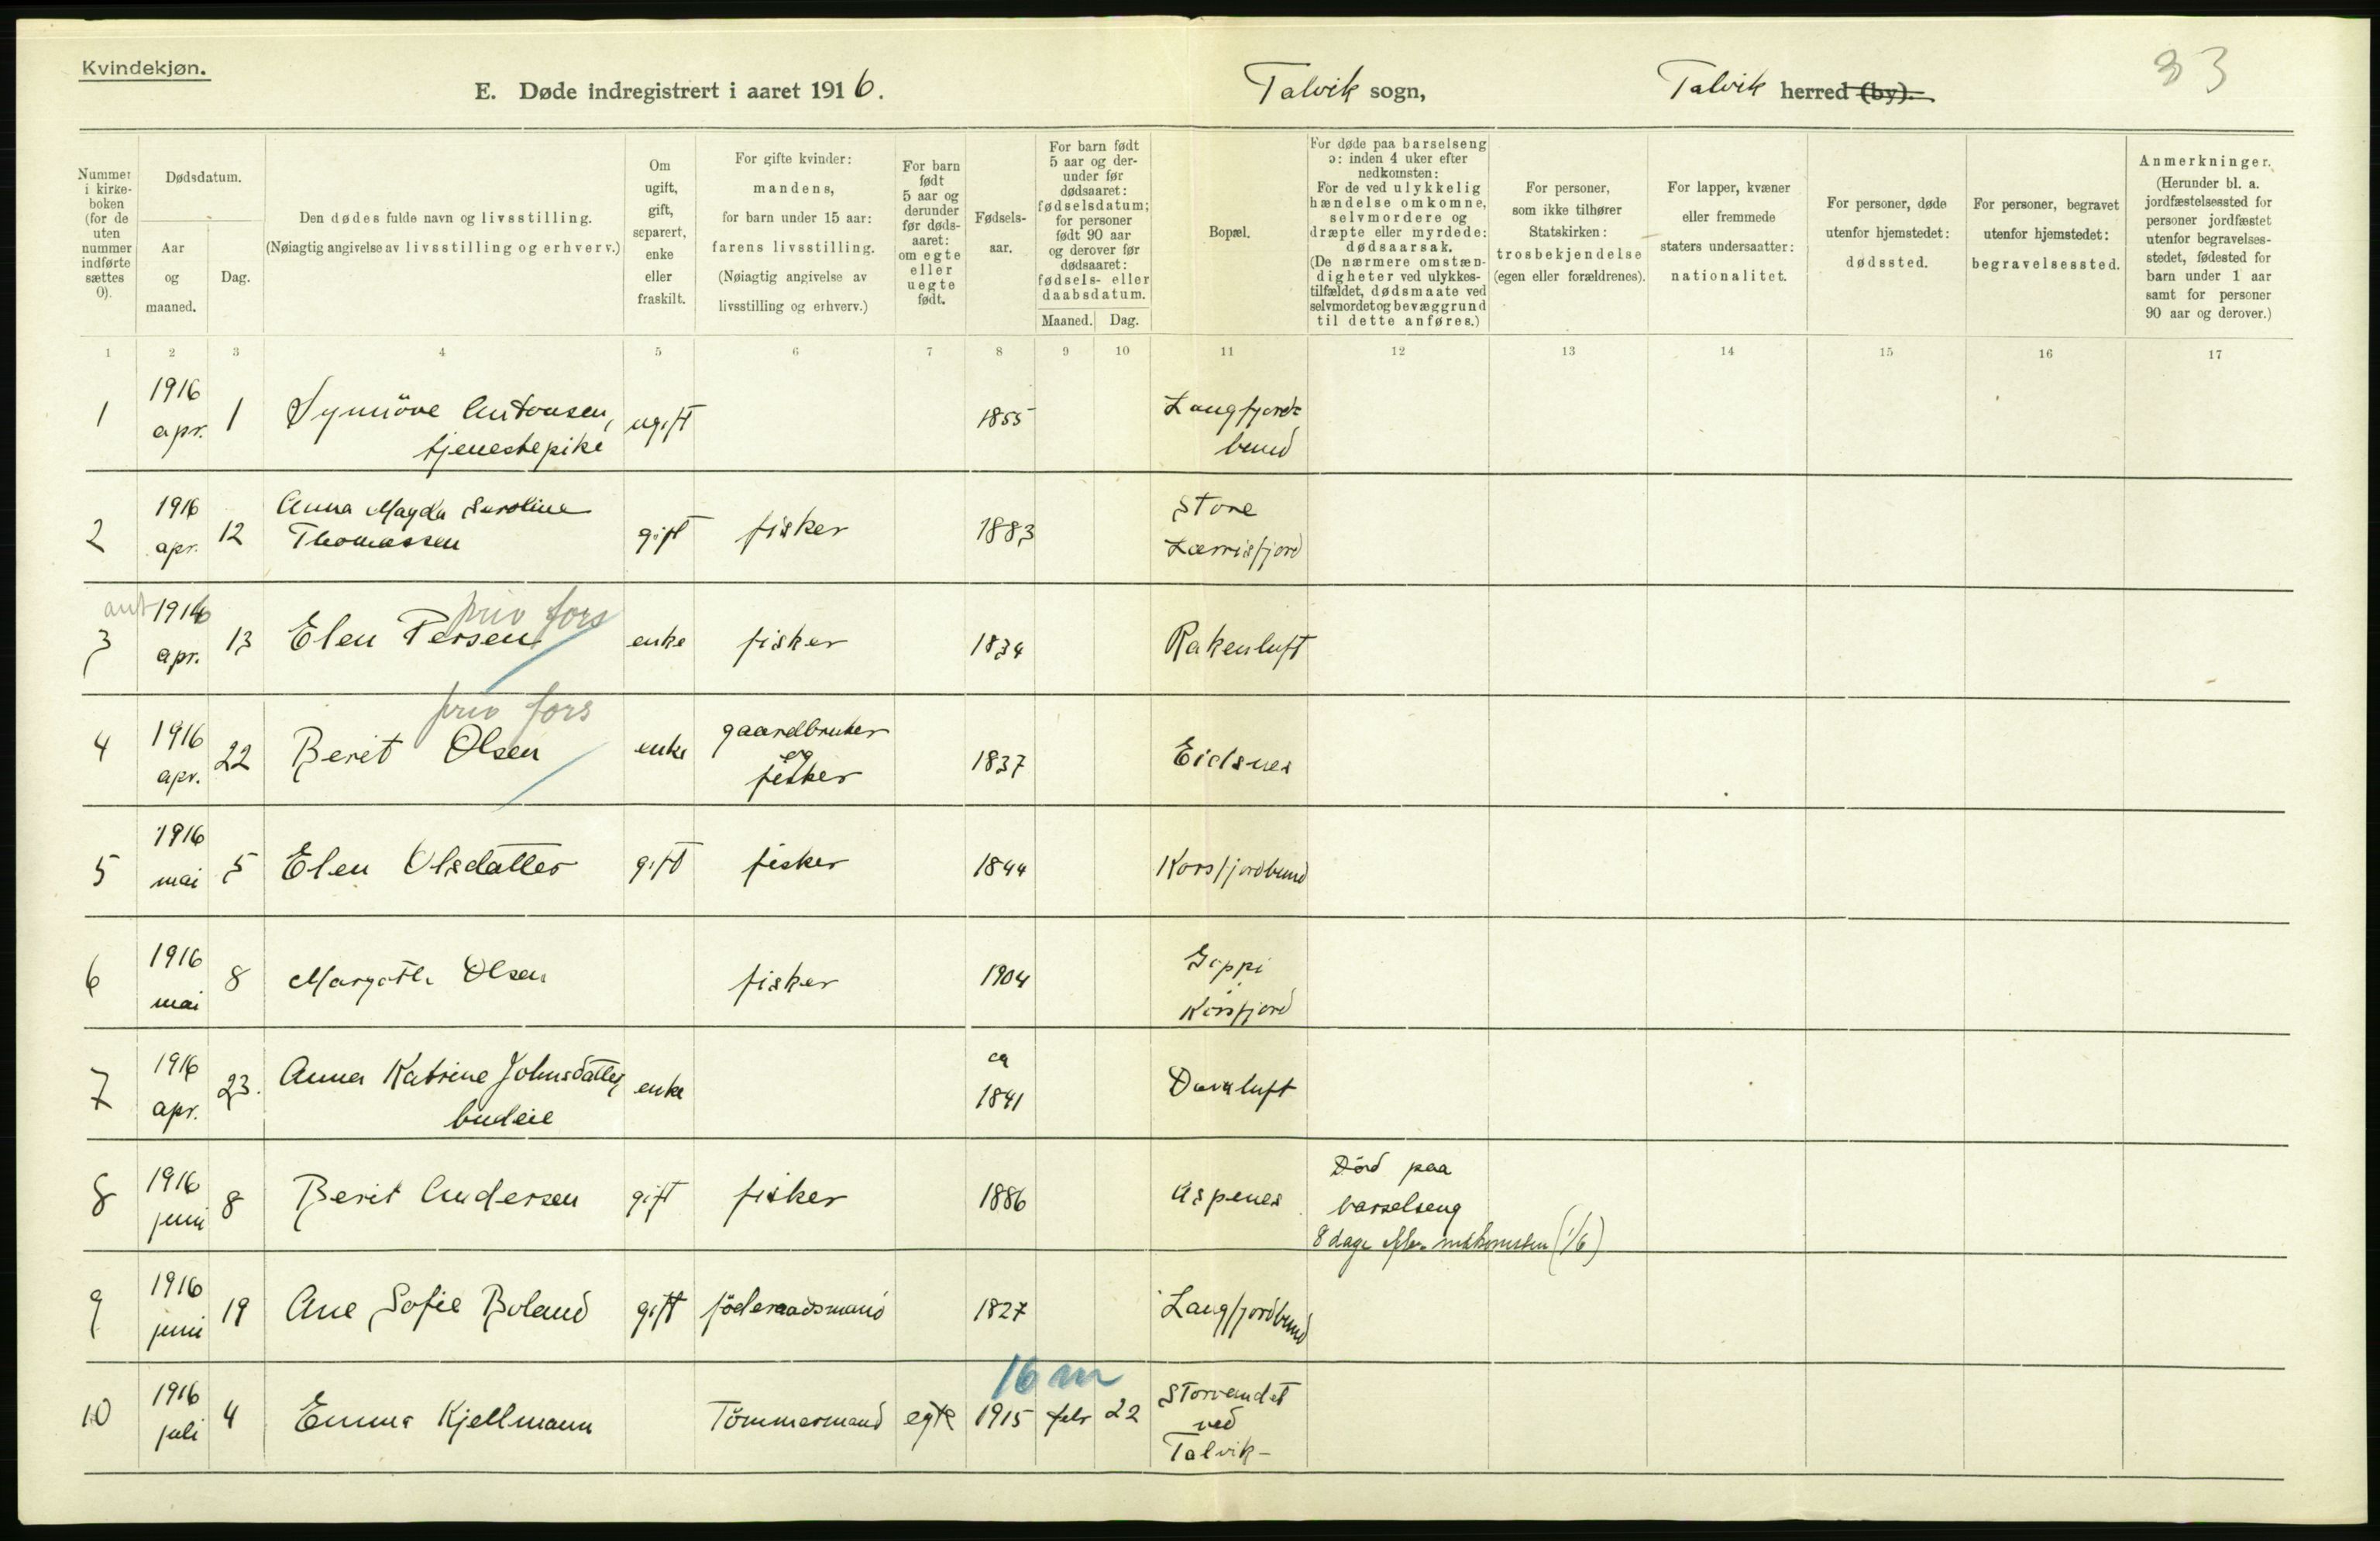 Kvindekjøn.
E. Døde indregistrert i aaret 1916.
Talvik sogn,
Talvik herred (by).
33
Nummer i kirkeboken (for de uten nummer indførte sættes 0).
Dødsdatum.
Aar og maaned.
Dag.
Den dødes fulde navn og livsstilling.
(Nøiagtig angivelse av livsstilling og erhverv.)
Om ugift, gift, separert, enke eller fraskilt.
For gifte kvinder: mandens, for barn under 15 aar: farens livsstilling. (Nøiagtig angivelse av livsstilling og erhverv.)
For barn født 5 aar og derunder før dødsaaret: om egte eller uegte født.
Fødselsaar.
For barn født 5 aar og derunder før dødsaaret: fødselsdatum; for personer født 90 aar og derover før dødsaaret: fødsels- eller daabsdatum.
Maaned. Dag.
Bopæl.
For døde paa barselseng ɔ: inden 4 uker efter nedkomsten: For de ved ulykkelig hændelse omkomne, selvmordere og dræpte eller myrdede: dødsaarsak. (De nærmere omstændigheter ved ulykkestilfældet, dødsmaate ved selvmordet og bevæggrund til dette anføres.)
For personer, som ikke tilhører Statskirken: trosbekjendelse (egen eller forældrenes).
For lapper, kvæner eller fremmede staters undersaatter: nationalitet.
For personer, døde utenfor hjemstedet: dødssted.
For personer, begravet utenfor hjemstedet: begravelsessted.
Anmerkninger. (Herunder bl. a. jordfæstelsessted for personer jordfæstet utenfor begravelsesstedet, fødested for barn under 1 aar samt for personer 90 aar og derover.)
1 2 3 4 5 6 7 8 9 10 11 12 13 14 15 16 17
1 1916 apr. 1 Synnöve Antonsen, tjenestepike ugift 1855 Langfjordbund
2 1916 apr. 12 Anna Magda Seroline Thomassen gift fisker 1883 Store Lærrisfjord
3 1916 apr. 13 Elen Persen priv fors enke fisker 1834 Rakenluft
4 1916 apr. 22 Berit Olsen priv fors enke gaardbruker og fisker 1837 Eidsnes
5 1916 mai 5 Elen Olsdatter gift fisker 1844 Korsfjordbund
6 1916 mai 8 Margoth Olsen fisker 1904 Korsfjord
7 1916 apr. 23. Anna Katrine Johnsdatter, budeie enke ca 1841
8 1916 juni 8 Berit Andersen gift fisker 1886 Aspenes Död paa barselseng 8 dage efter nedkomsten (1/6)
9 1916 juni 19 Ane Sofie Boland gift föderaadsmand 1827 Langfjordbund
10 1916 juli 4 Emma Kjellmann Tömmermand egte 16 m 1915 febr 22 Storvandet ved Talvik-